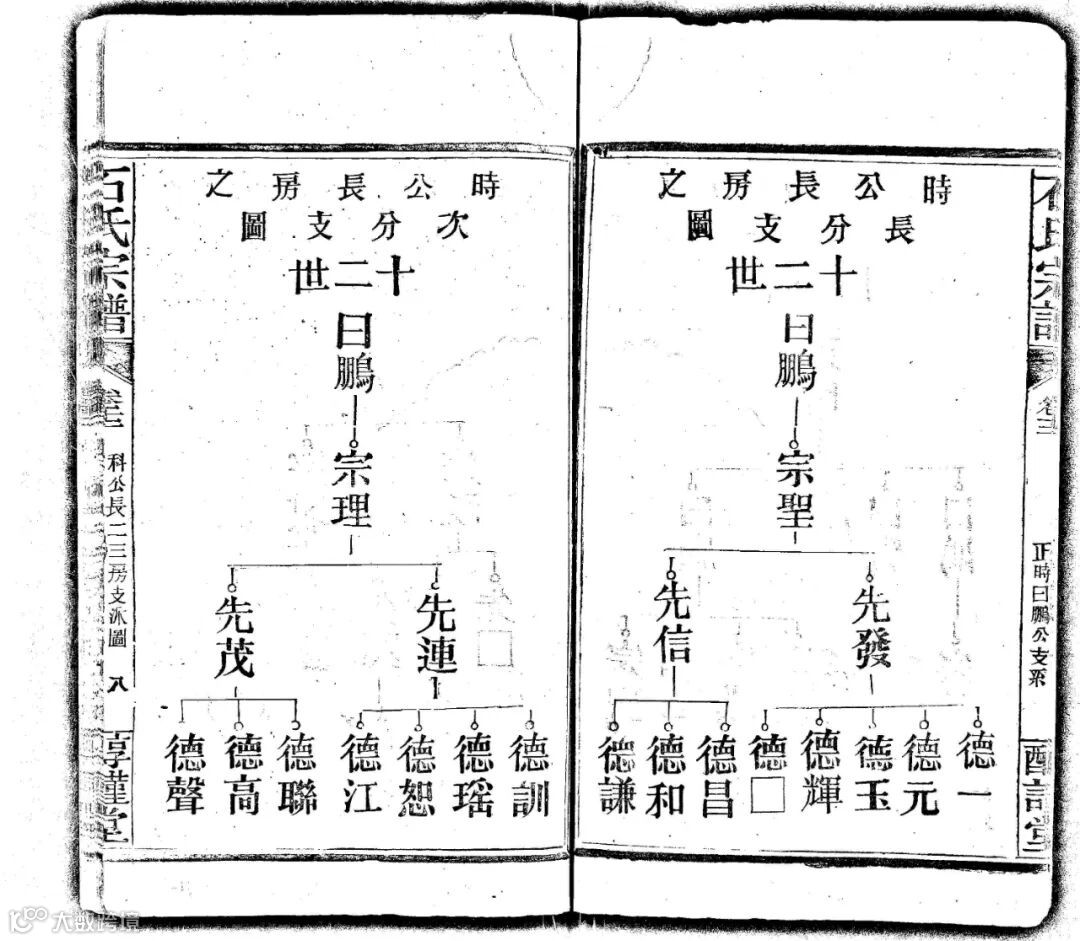 時公長房之
長分支圖
十二世
曰鵬
宗聖
先發
先信
德一
德元
德玉
德輝
德□
德昌
德和
德謙
卷三
正時曰鵬公支系
時公長房之
次分支圖
十二世
曰鵬
宗理
先連
先茂
德訓
德瑶
德恕
德江
德聯
德高
德聲
石氏宗譜
卷三
科公長二三房支派圖
八
大数跨境